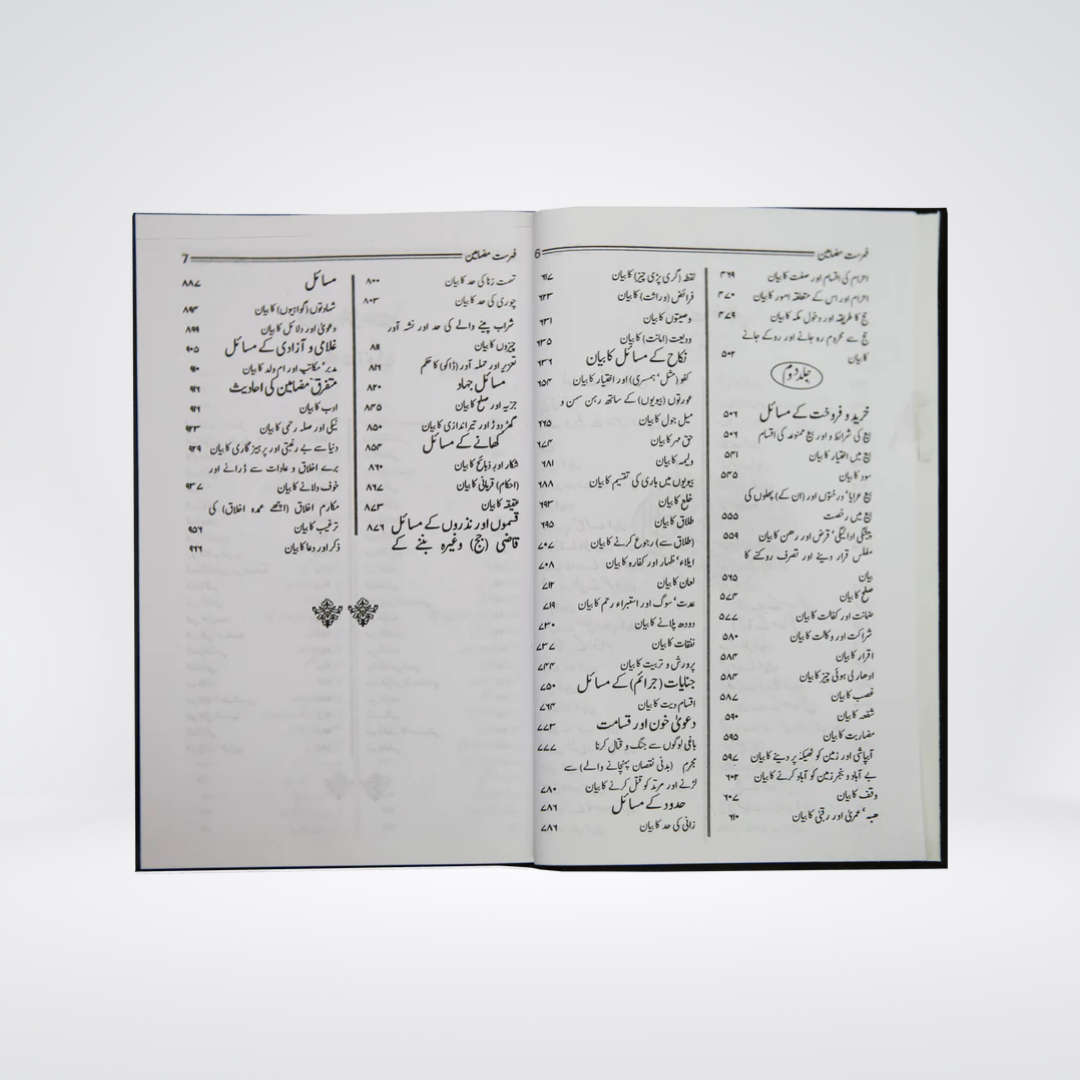 فہرست مضامین 6
احرام کی اقسام اور صفت کا بیان ۴۶۹
احرام اور اس کے متعلقہ امور کا بیان ۴۷۰
حج کا طریقہ اور دخول مکہ کا بیان ۴۷۹
حج سے محروم رہ جانے اور روکے جانے
کا بیان ۵۰۲
جلد دوم
خرید و فروخت کے مسائل ۵۰۶
بیع کی شرائط و اور بیع ممنوعہ کی اقسام ۵۰۶
بیع میں اختیار کا بیان ۵۴۱
سود کا بیان ۵۴۵
بیع عرایا' درختوں اور (ان کے) پھلوں کی
بیع میں رخصت ۵۵۵
پیشگی ادائیگی' قرض اور رھن کا بیان ۵۵۹
مفلس قرار دینے اور تصرف روکنے کا
بیان ۵۶۵
صلح کا بیان ۵۷۴
ضمانت اور کفالت کا بیان ۵۷۷
شراکت اور وکالت کا بیان ۵۸۰
اقرار کا بیان ۵۸۴
ادھار لی ہوئی چیز کا بیان ۵۸۴
غصب کا بیان ۵۸۷
شفعہ کا بیان ۵۹۰
مضاربت کا بیان ۵۹۵
آبپاشی اور زمین کو ٹھیکہ پر دینے کا بیان ۵۹۷
بے آباد و بنجر زمین کو آباد کرنے کا بیان ۶۰۲
وقف کا بیان ۶۰۷
ھبہ' عمریٰ اور رقبیٰ کا بیان ۶۱۰
لقطہ (گری پڑی چیز) کا بیان ۶۱۷
فرائض (وراثت) کا بیان ۶۲۳
وصیتوں کا بیان ۶۳۱
ودیعت (امانت) کا بیان ۶۳۵
نکاح کے مسائل کا بیان ۶۳۶
کفو (مثل' ہمسری) اور اختیار کا بیان ۶۵۴
عورتوں (بیویوں) کے ساتھ رہن سہن و
میل جول کا بیان ۶۶۵
حق مہر کا بیان ۶۷۴
ولیمہ کا بیان ۶۸۱
بیویوں میں باری کی تقسیم کا بیان ۶۸۸
خلع کا بیان ۶۹۳
طلاق کا بیان ۶۹۵
(طلاق سے) رجوع کرنے کا بیان ۷۰۷
ایلاء' ظہار اور کفارہ کا بیان ۷۰۸
لعان کا بیان ۷۱۲
عدت' سوگ اور استبراء رحم کا بیان ۷۱۹
دودھ پلانے کا بیان ۷۳۰
نفقات کا بیان ۷۳۷
پرورش و تربیت کا بیان ۷۴۴
جنایات (جرائم) کے مسائل ۷۵۰
اقسام دیت کا بیان ۷۶۴
دعویٰ خون اور قسامت ۷۷۳
باغی لوگوں سے جنگ و قتال کرنا ۷۷۷
مجرم (بدنی نقصان پہنچانے والے) سے
لڑنے اور مرتد کو قتل کرنے کا بیان ۷۸۰
حدود کے مسائل ۷۸۶
زانی کی حد کا بیان ۷۸۶
فہرست مضامین 7
تہمت زنا کی حد کا بیان ۸۰۰
چوری کی حد کا بیان ۸۰۳
شراب پینے والے کی حد اور نشہ آور
چیزوں کا بیان ۸۱۱
تعزیر اور حملہ آور (ڈاکو) کا حکم ۸۱۶
مسائل جہاد ۸۲۰
جزیہ اور صلح کا بیان ۸۴۵
گھڑ دوڑ اور تیر اندازی کا بیان ۸۵۰
کھانے کے مسائل ۸۵۴
شکار اور ذبائح کا بیان ۸۶۰
(احکام) قربانی کا بیان ۸۶۷
عقیقہ کا بیان ۸۷۳
قسموں اور نذروں کے مسائل ۸۷۶
قاضی (جج) وغیرہ بننے کے
مسائل ۸۸۷
شہادتوں (گواہیوں) کا بیان ۸۹۴
دعویٰ اور دلائل کا بیان ۸۹۹
غلامی و آزادی کے مسائل ۹۰۵
مدبر' مکاتب اور ام ولد کا بیان ۹۱۰
متفرق مضامین کی احادیث ۹۱۶
ادب کا بیان ۹۱۶
نیکی اور صلہ رحمی کا بیان ۹۲۳
دنیا سے بے رغبتی اور پرہیز گاری کا بیان ۹۲۹
برے اخلاق و عادات سے ڈرانے اور
خوف دلانے کا بیان ۹۳۷
مکارم اخلاق (اچھے عمدہ اخلاق) کی
ترغیب کا بیان ۹۵۶
ذکر اور دعا کا بیان ۹۶۶